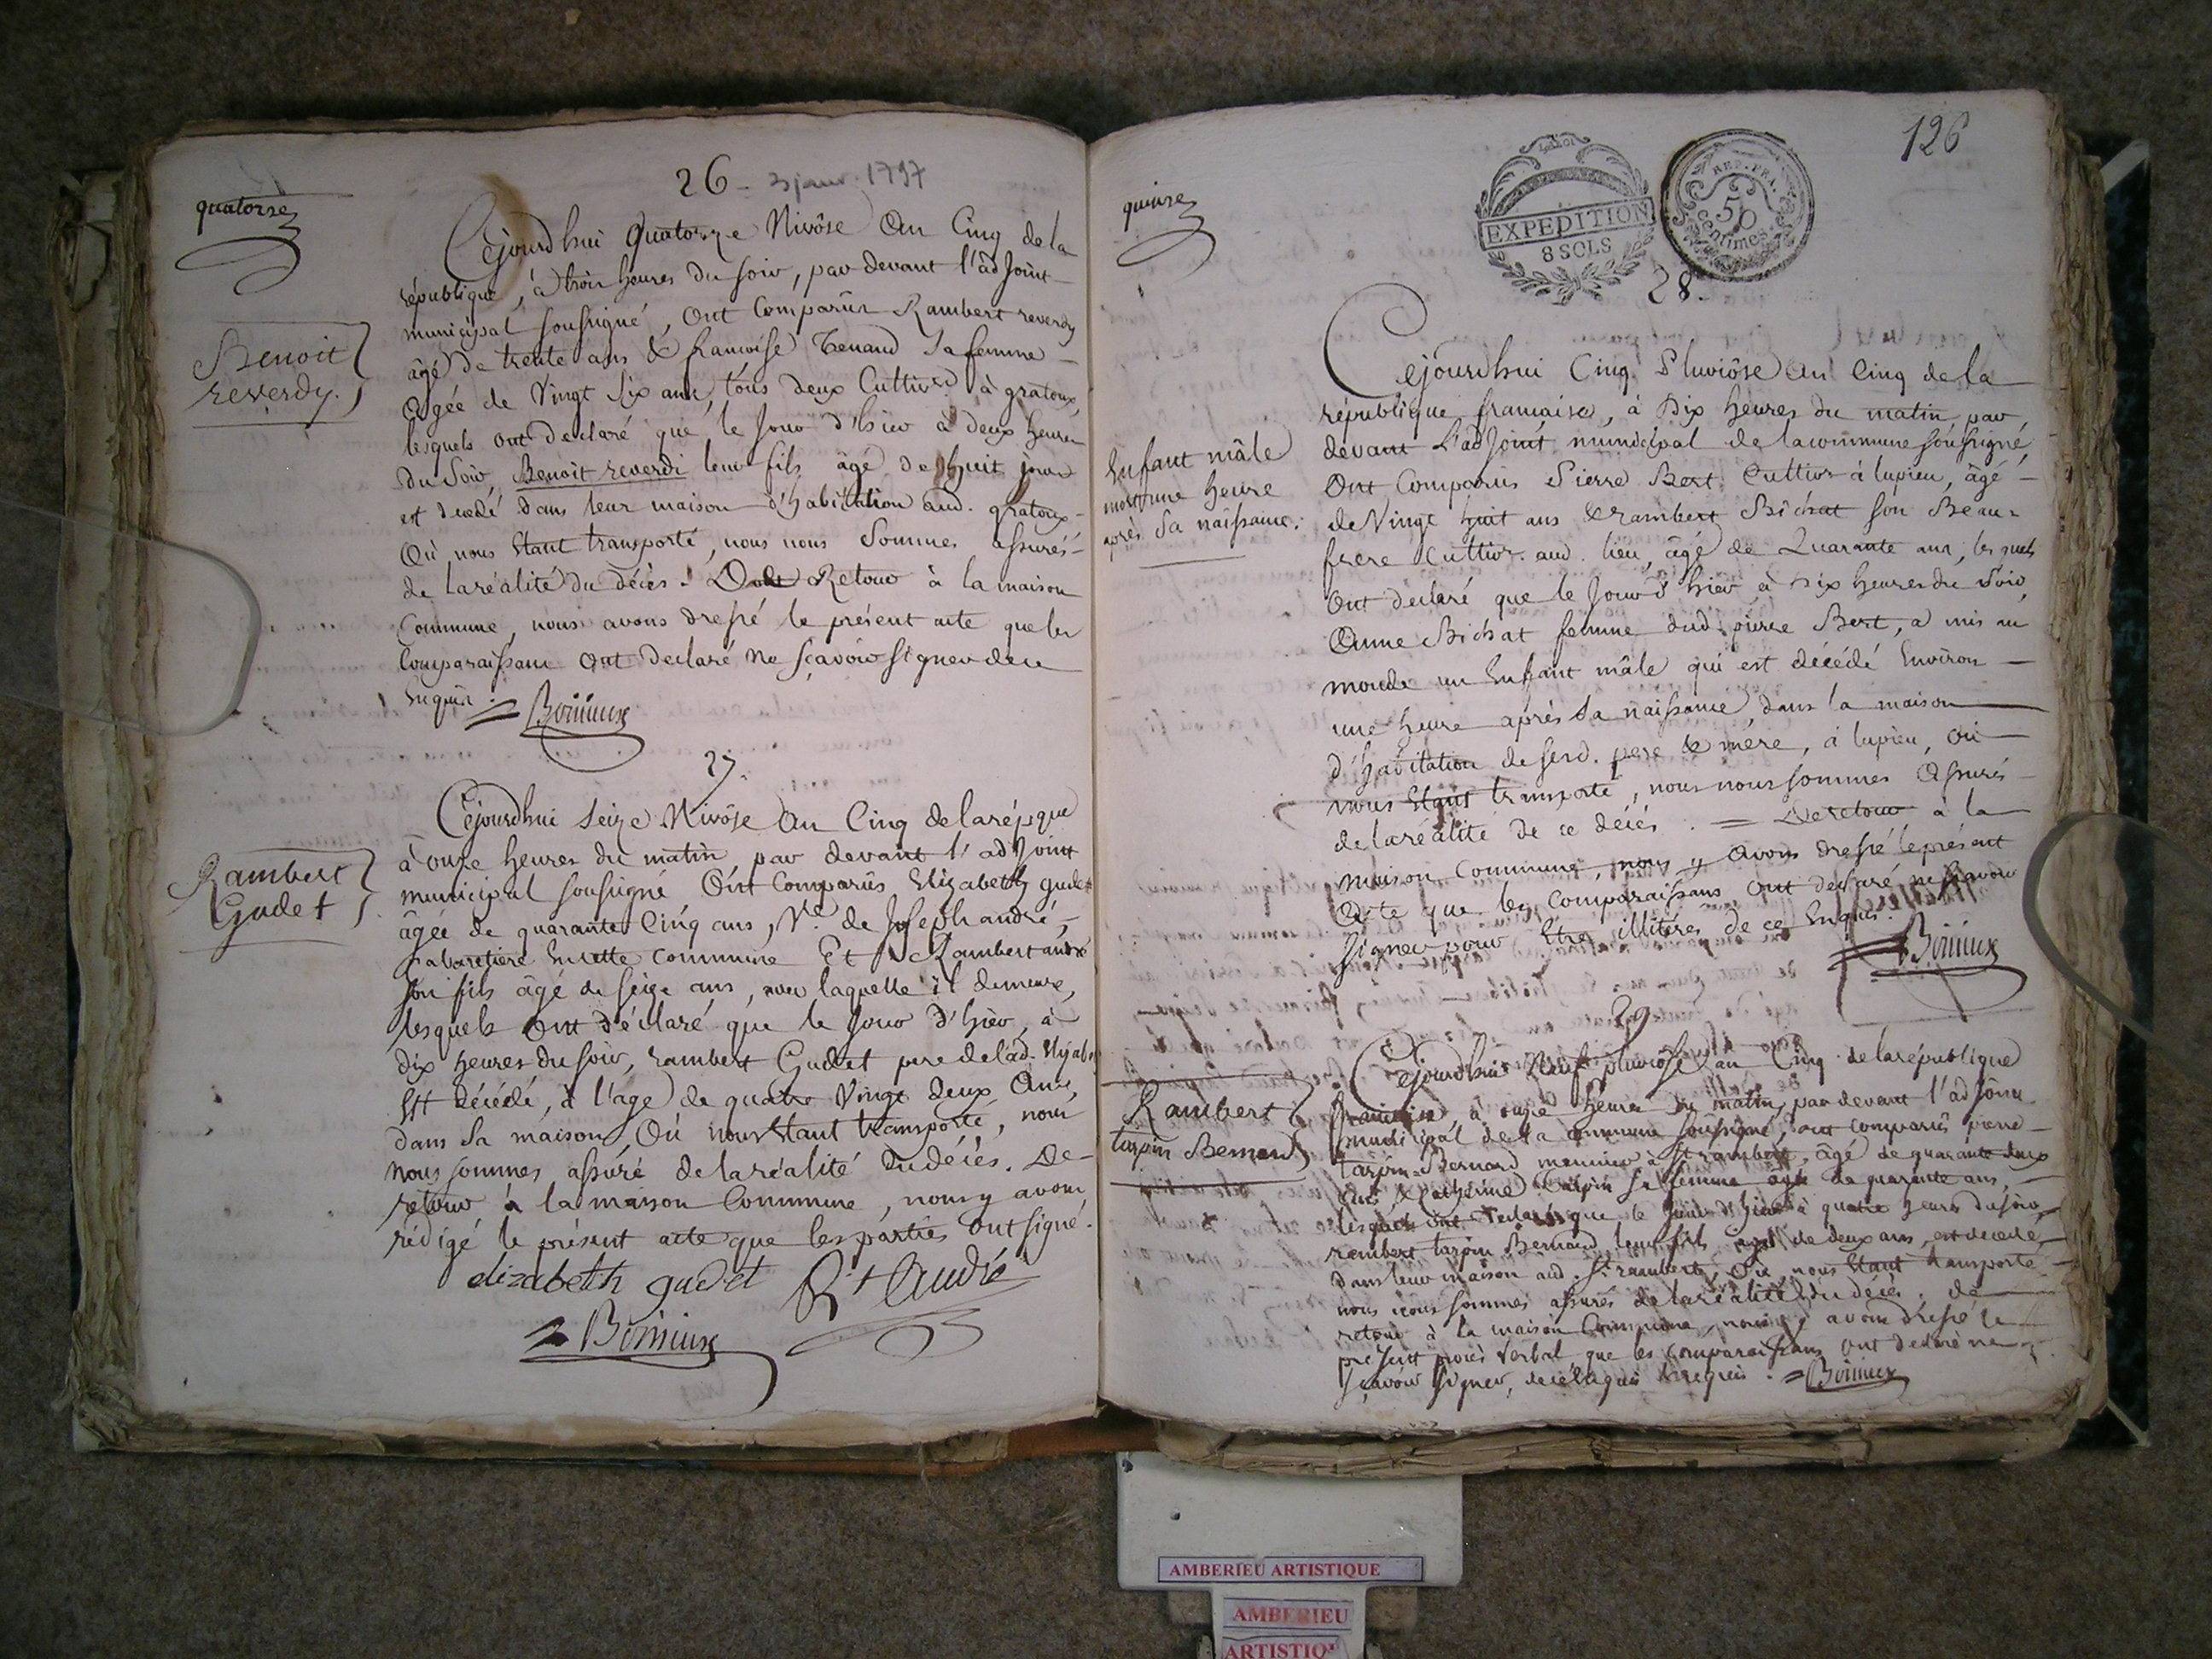 quatorze
26 - 3 janv. 1797
Cejourdhui Quatorze Nivôse An Cinq de la
république, à trois heures du soir, par devant l'adjoint
municipal soussigné, ont Comparûs Rambert reverdy
âgé de trente ans & francoise Tenand sa femme
agée de Vingt six ans, tous deux Cultivrs à gratoux,
lesquels ont declaré que le jour d'hier à deux heures
du soir, Benoit reverdi leur fils âgé de huit jours
est decédé dans leur maison d'habitation aud. gratoux
Où nous étant transporté, nous nous sommes assurés
de la réalité du décès. De Retour à la maison
Commune, nous avons dressé le présent acte que les
Comparaissans ont declaré ne sçavoir signer de ce
Enquis. = Bonieux
Benoit
reverdy.
27.
Cejourdhui seize Nivôse An Cinq de la répque
à onze heures du matin, par devant l'adjoint
municipal soussigné Ont Comparûs Elizabeth gudet
âgée de quarante Cinq ans, Ve. de Joseph andré,
Cabaretiere En cette commune Et Rambert andré
son fils âgé de seize ans, avec laquelle il demeure,
lesquels Ont déclaré que le jour d'hier, à
dix heures du soir, rambert Gudet pere de lad. Elizab.
Est décédé, à l'age de quatre Vingt deux Ans,
dans sa maison, Où nous étant transporté, nous
nous sommes assuré de la réalité du décés. De
retour à la maison Commune, nous y avons
rédigé le présent acte que les parties ont signé.
elizabeth gudet Rt André
= Bonieux
Rambert
Gudet
126
quinze
EXPEDITION
8 SOLS
REP. FRA.
50
centimes
28.
Cejourdhui Cinq Pluviôse an Cinq de la
république francaise, à Dix heures du matin par
devant L'adjoint municipal de la commune soussigné,
Ont Comparûs Pierre Bert Cultivr à lupieu, âgé
de Vingt huit ans & rambert Bichat son Beau-
frere Cultivr. aud. lieu, âgé de Quarante ans, lesquels
Ont declaré que le Jour d'hier à Dix heures du soir,
Anne Bichat femme dud. pierre Bert, a mis au
monde un Enfant mâle qui est décédé Environ
une heure aprés sa naissance, dans la maison
d'habitation de sesd. pere & mere, à lupieu, où
nous étant transporté, nous nous sommes Assurés
de la réalité de ce décés. = De retour à la
maison Commune, nous y avons dressé le présent
Acte que les Comparaissans ont declaré ne sçavoir
signer pour être illitérés de ce Enquis.
= Bonieux
Enfant mâle
mort une heure
après sa naissance.
29
Cejourdhui Neuf pluviôse an Cinq de la république
francaise à onze heures du matin, par devant l'adjoint
municipal de la commune soussigné, ont comparûs pierre
tarpin-Bernard meunier à St rambert, âgé de quarante deux
ans & Catherine tarpin sa femme âgée de quarante ans,
lesquels ont declaré que le jour d'hier à quatre heures du soir,
rambert tarpin Bernard leur fils, agé de deux ans, est decedé
dans leur maison aud. St rambert, Où nous étant transporté
nous nous sommes assurés de la réalité du décés. de
retour à la maison Commune, nous y avons dressé le
présent procès Verbal que les comparaissans ont declaré ne
sçavoir signer, de ce Enquis requis. = Bonieux
Rambert
tarpin Bernard
AMBERIEU ARTISTIQUE
AMBERIEU
ARTISTIQ